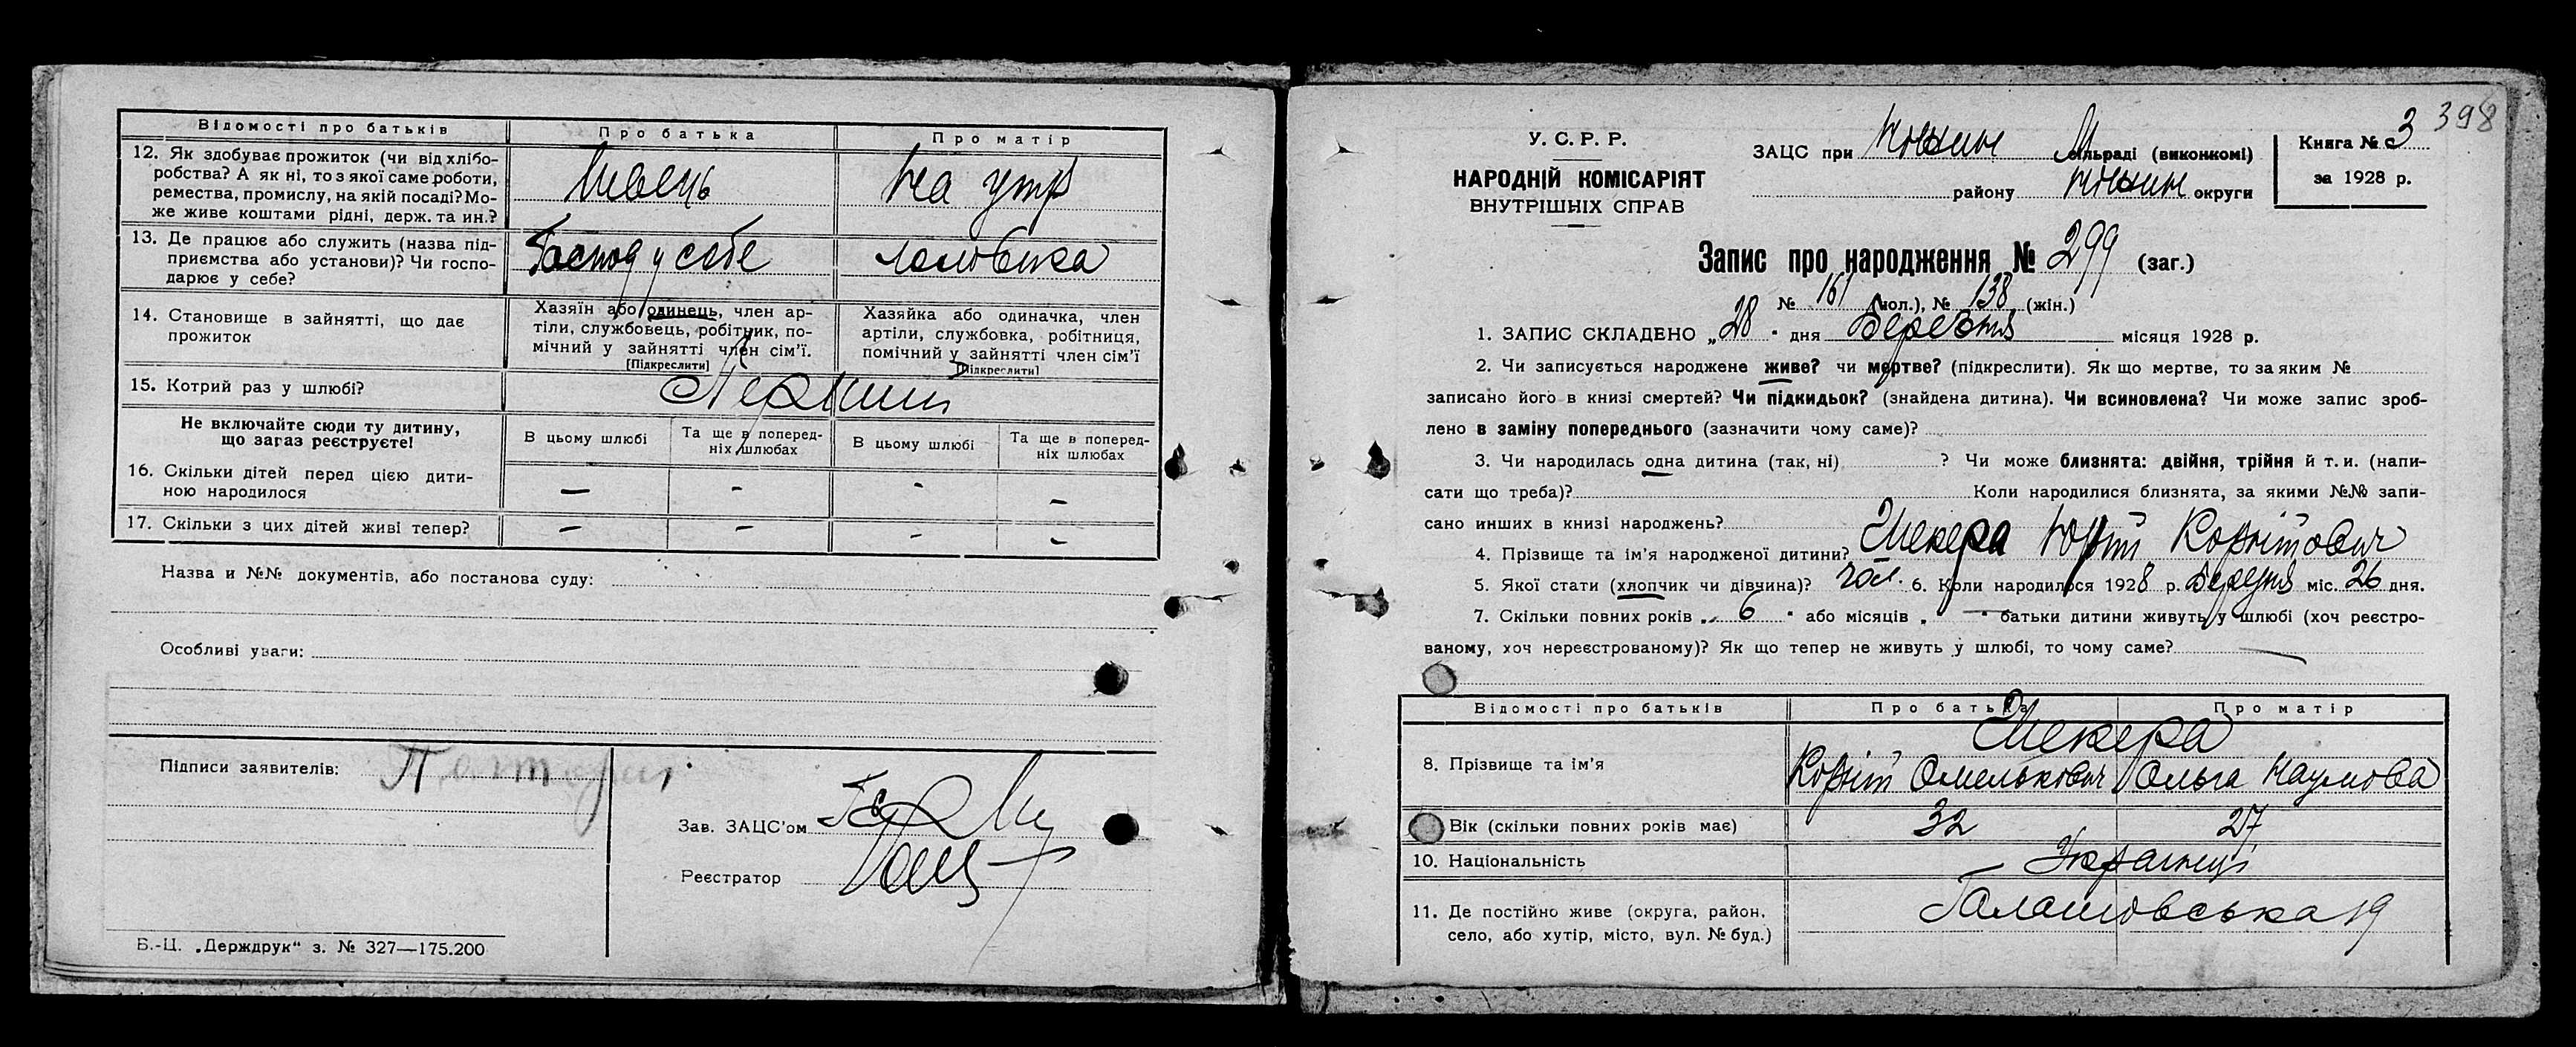 Відомості про батьків Про батька Про матір
12. Як здобуває прожиток (чи від хлібо-
робства? А як ні, то з якої саме роботи,
ремества, промислу, на якій посаді? Мо-
же живе коштами рідні, держ. та ин.?
Швець На утр
13. Де працює або служить (назва під-
приємства або установи)? Чи госпо-
дарює у себе?
Господ у себе чоловіка
14. Становище в зайнятті, що дає
прожиток
Хазяїн або одинець, член ар-
тіли, службовець, робітник, по-
мічний у зайнятті член сім'ї.
[Підкреслити]
Хазяйка або одиначка, член
артіли, службовка, робітниця,
помічний у зайнятті член сім'ї
[Підкреслити]
15. Котрий раз у шлюбі? Перший
Не включайте сюди ту дитину,
що зараз реєструєте!
В цьому шлюбі Та ще в поперед-
ніх шлюбах В цьому шлюбі Та ще в поперед-
ніх шлюбах
16. Скільки дітей перед цією дити-
ною народилося — - - -
17. Скільки з цих дітей живі тепер? — — - -
Назва и №№ документів, або постанова суду:
Особливі уваги:
Підписи заявителів:
Зав. ЗАЦС'ом
Реєстратор
Б.-Ц. „Держдрук“ з. № 327—175.200
398
У. С. Р. Р.
НАРОДНІЙ КОМІСАРІЯТ
ВНУТРІШНІХ СПРАВ
ЗАЦС при сільраді (виконкомі)
району округи
Книга № 3
за 1928 р.
Запис про народження № 299 (заг.)
№ 161 (чол.), № 138 (жін.)
1. ЗАПИС СКЛАДЕНО „28" дня Березня місяця 1928 р.
2. Чи записується народжене живе? чи мертве? (підкреслити). Як що мертве, то за яким №
записано його в книзі смертей? Чи підкидьок? (знайдена дитина). Чи всиновлена? Чи може запис зроб-
лено в заміну попереднього (зазначити чому саме)?
3. Чи народилась одна дитина (так, ні) ? Чи може близнята: двійня, трійня й т. и. (напи-
сати що треба)? Коли народилися близнята, за якими №№ запи-
сано инших в книзі народжень?
4. Прізвище та ім'я народженої дитини? Шекера Юрій Корнійович
5. Якої стати (хлопчик чи дівчина)? чол. 6. Коли народилося 1928 р. Березня міс. 26 дня.
7. Скільки повних років „ 6 " або місяців „ — " батьки дитини живуть у шлюбі (хоч реєстро-
ваному, хоч нереєстрованому)? Як що тепер не живуть у шлюбі, то чому саме? —
Відомості про батьків Про батька Про матір
Шекера
8. Прізвище та ім'я Корній Омелькович Ольга Наумова
Вік (скільки повних років має) 32 27
10. Національність Українці
11. Де постійно живе (округа, район,
село, або хутір, місто, вул. № буд.)
19